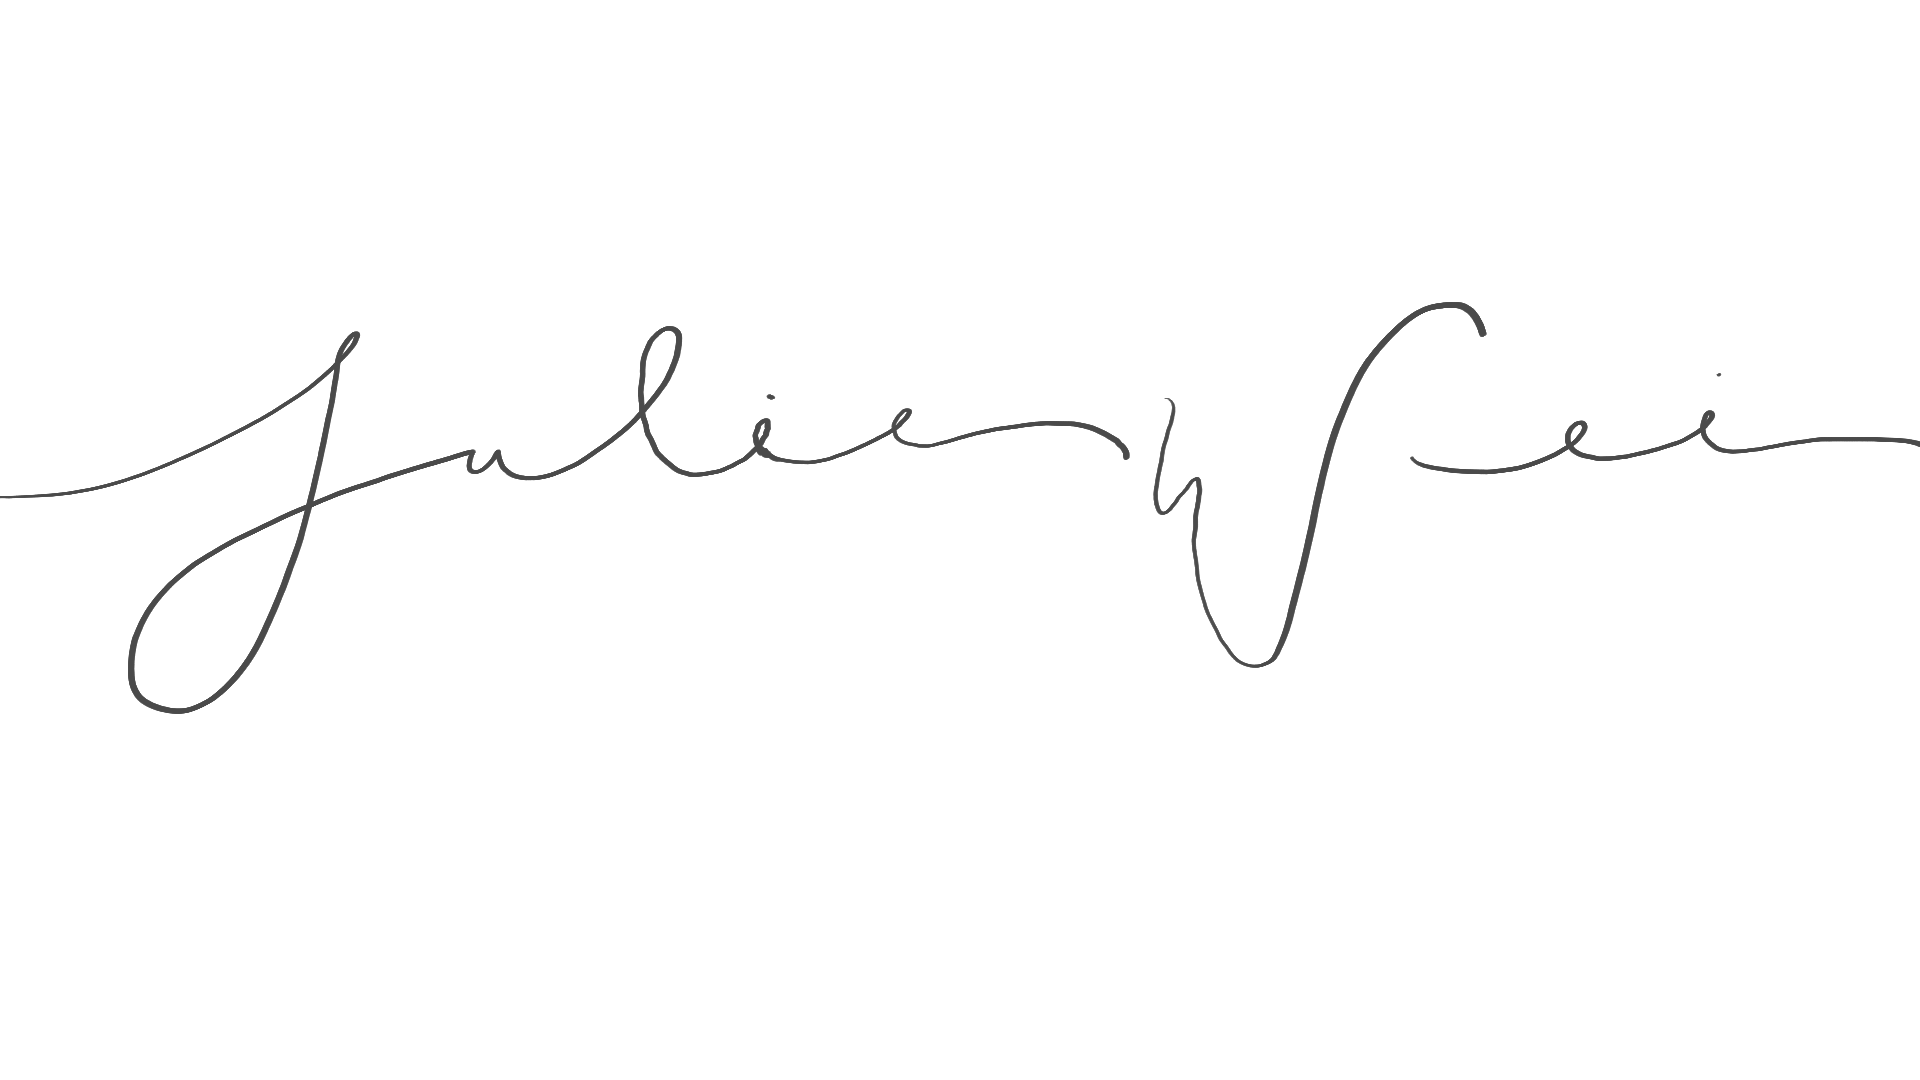 Julie Wei